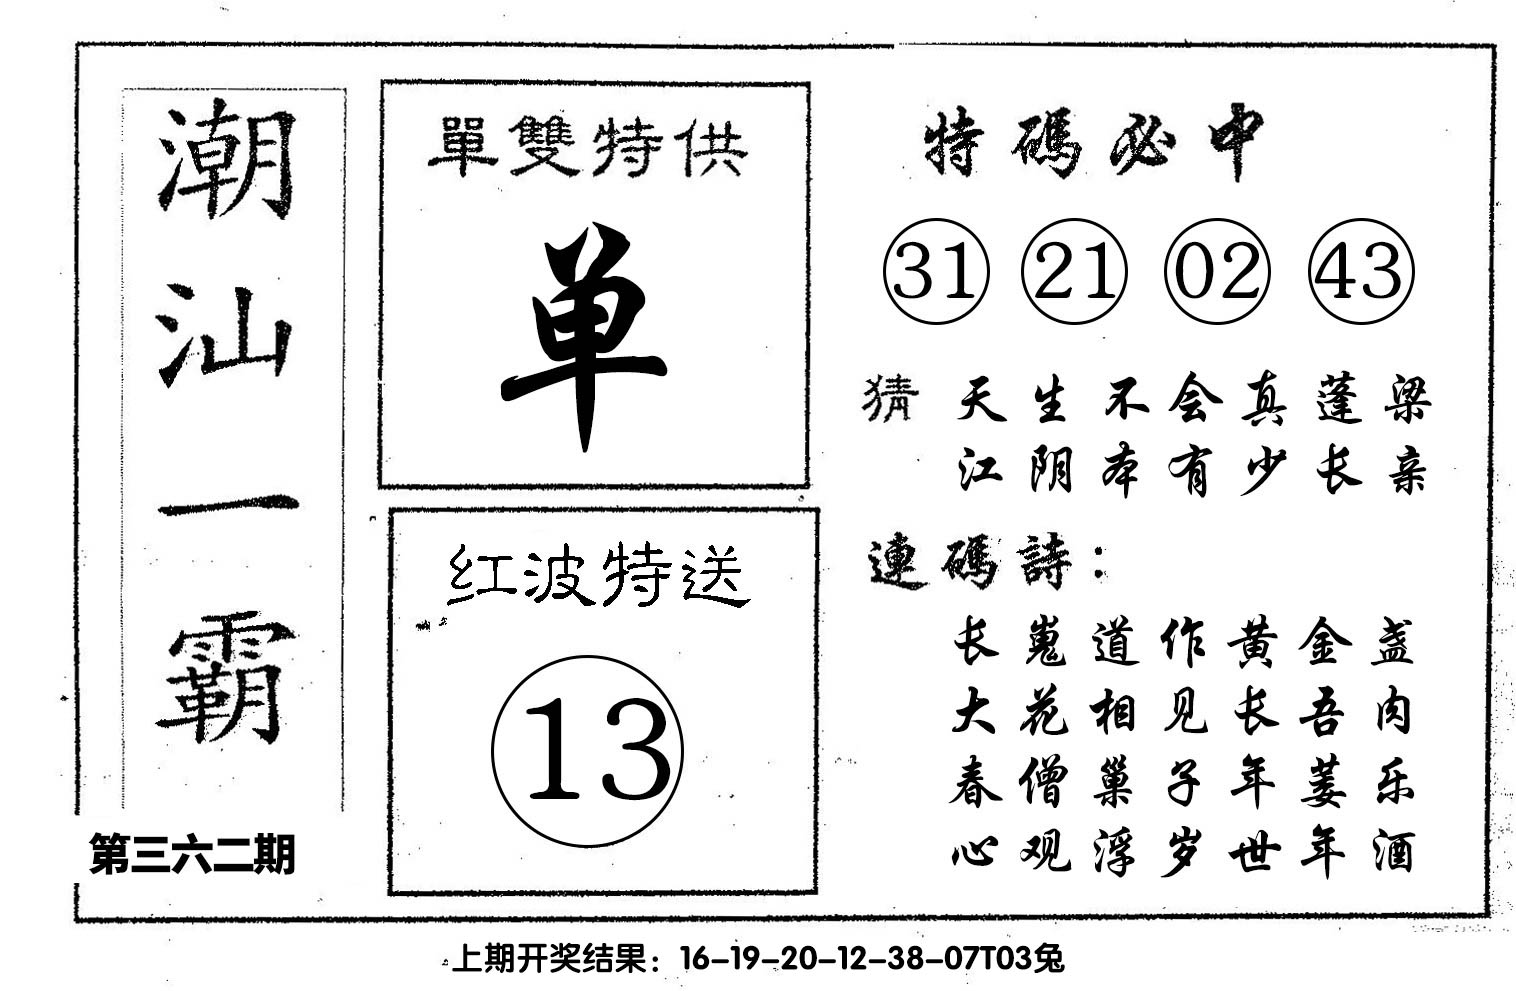 潮汕一霸
第三六二期
單雙特供
单
红波特送
13
特碼必中
31 21 02 43
猜 天生不会真蓬梁
江阴本有少长亲
連碼詩：
长嵬道作黄金盏
大花相见长吾肉
春僧巢子年萎乐
心观浮岁世年酒
上期开奖结果：16-19-20-12-38-07T03兔